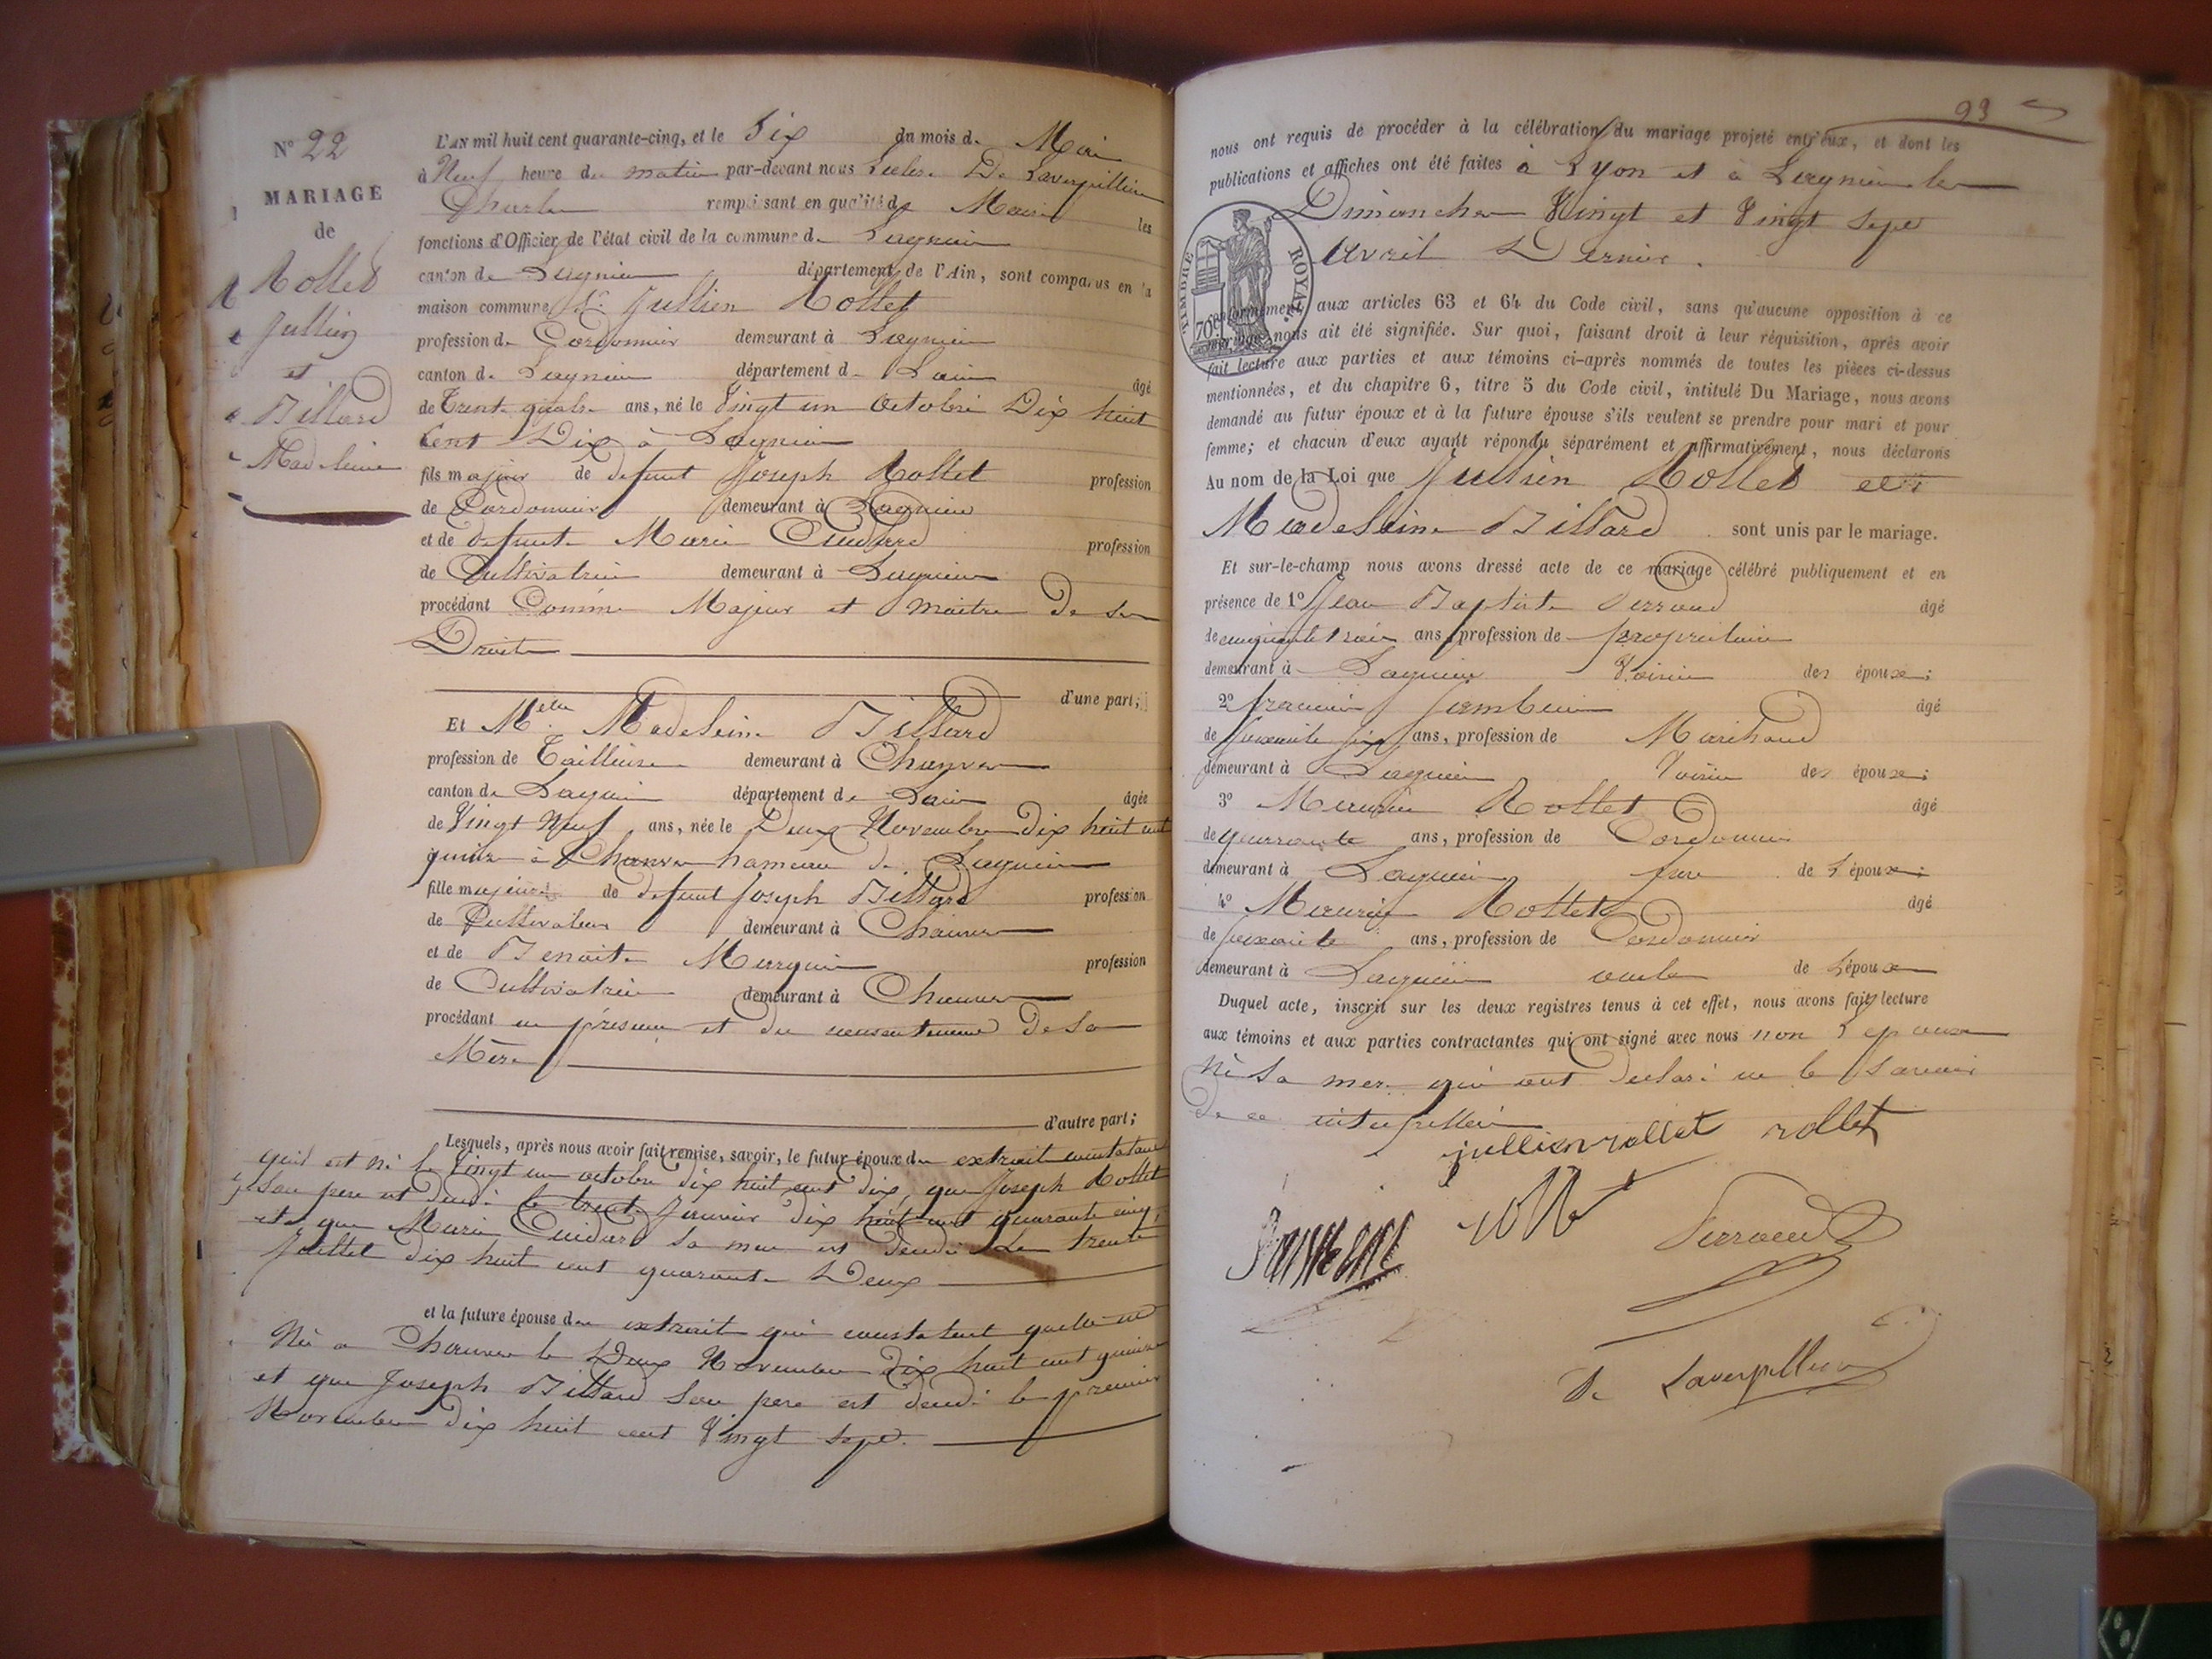 N° 22
MARIAGE
de
Rollet
Jullien
et
Billard
Madeleine
L'AN mil huit cent quarante-cinq, et le Six du mois de Mai
à Neuf heure du matin par-devant nous De Laverpillière
Charles remplissant en qualité de Maire les
fonctions d'Officier de l'état civil de la commune de Lagnieu
canton de Lagnieu département de l'Ain, sont comparus en la
maison commune Sr Jullien Rollet
profession de Cordonnier demeurant à Lagnieu
canton de Lagnieu département de Lain âgé
de Trente quatre ans, né le Vingt un Octobre Dix huit
Cent Dix à Lagnieu
fils majeur de defunt Joseph Rollet profession
de Cordonnier demeurant à Lagnieu
et de defunte Marie profession
de Cultivatrice demeurant à Lagnieu
procédant Comme Majeur et Maitre De Ses
Droits
d'une part;
Et Melle Madeleine Billard
profession de Tailleuse demeurant à Chanves
canton de Lagnieu département de Lain âgée
de Vingt Neuf ans, née le Deux Novembre Dix huit cent
quinze à Chanves hameau de Lagnieu
fille majeure de defunt Joseph Billard profession
de Cultivateur demeurant à Chanves
et de Benoite Murguin profession
de Cultivatrice demeurant à Chanves
procédant en présence et du consentement De Sa
Mère
d'autre part;
Lesquels, après nous avoir fait remise, savoir, le futur époux de extrait constatant
quil est né le Vingt un octobre dix huit cent dix, que Joseph Rollet
Son pere est décédé le trente Janvier dix huit cent quarante cinq,
et que Marie sa mere est décédée Le trente
Juillet dix huit cent quarante Deux
et la future épouse de extrait qui constatent quelle est
Née a Chanves le Deux Novembre dix huit cent quinze
et que Joseph Billard Son pere est décédé le premier
Novembre dix huit cent Vingt sept.
93
nous ont requis de procéder à la célébration du mariage projeté entr'eux, et dont les
publications et affiches ont été faites à Lyon et à Lagnieu les
Dimanches Vingt et Vingt Sept
Avril Dernier.
TIMBRE ROYAL
70c
conformément aux articles 63 et 64 du Code civil, sans qu'aucune opposition à ce
mariage nous ait été signifiée. Sur quoi, faisant droit à leur réquisition, après avoir
fait lecture aux parties et aux témoins ci-après nommés de toutes les pièces ci-dessus
mentionnées, et du chapitre 6, titre 5 du Code civil, intitulé Du Mariage, nous avons
demandé au futur époux et à la future épouse s'ils veulent se prendre pour mari et pour
femme; et chacun d'eux ayant répondu séparément et affirmativement, nous déclarons
Au nom de la Loi que Jullien Rollet et
Madeleine Billard sont unis par le mariage.
Et sur-le-champ nous avons dressé acte de ce mariage célébré publiquement et en
présence de 1° Jean Baptiste Perraud âgé
de cinquante trois ans, profession de propriétaire
demeurant à Lagnieu Voisin des époux;
2° âgé
de soixante six ans, profession de Marchand
demeurant à Lagnieu Voisin des époux;
3° Rollet âgé
de quarante ans, profession de Cordonnier
demeurant à Lagnieu frere de l'époux;
4° Rollet âgé
de soixante ans, profession de Cordonnier
demeurant à Lagnieu oncle de l'époux
Duquel acte, inscrit sur les deux registres tenus à cet effet, nous avons fait lecture
aux témoins et aux parties contractantes qui ont signé avec nous non l'epouse
Ni Sa mere qui ont declaré ne le Savoir
De ce
jullien rollet rollet
Perraud
De Laverpillière